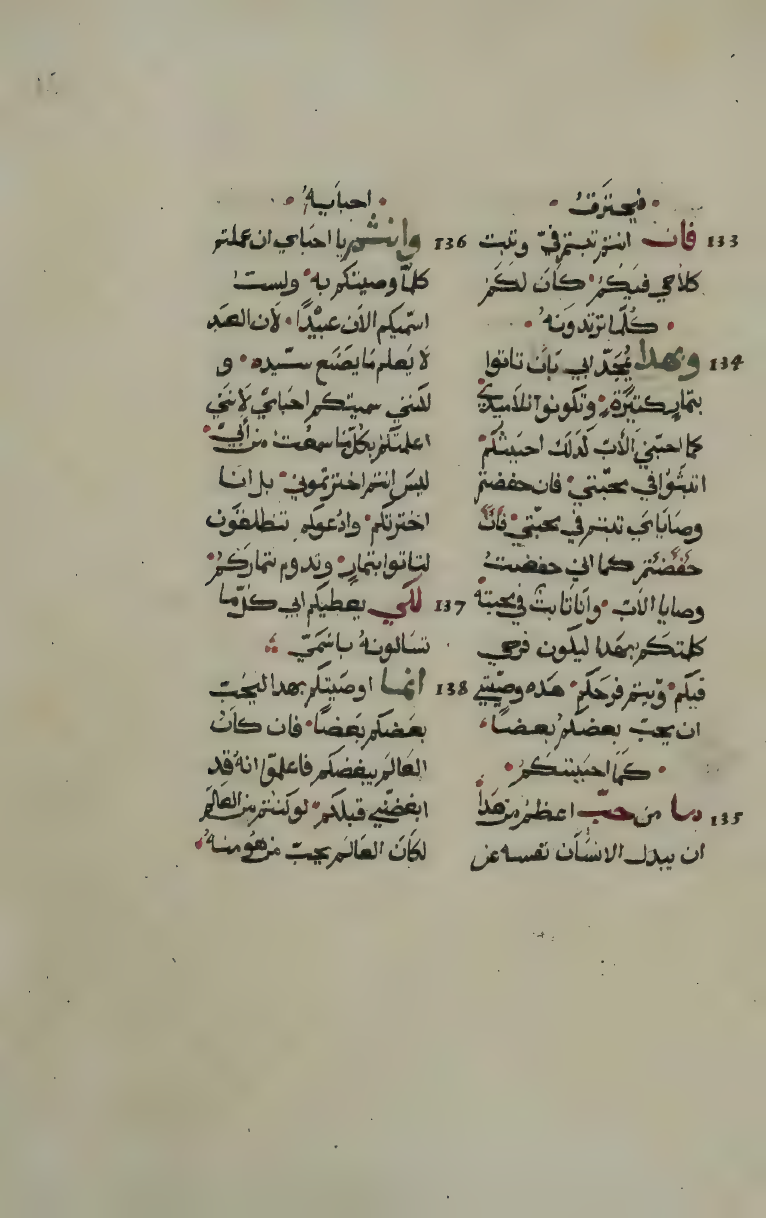 فيحترق
133 فان انتم تبتم في وتبت
كلامي فيكم كان لكم
كلما تريدونه
134 وبهدا يمجد ابي بان تاتوا
بتمار كتيرة وتكونوا تلاميدي
كما احبني الاب كدلك احببتكم
اتبتوا في محبتي فان حفضتم
وصاياي تبتم في محبتي فان
حفضتم كما اني حفضت
وصايا الاب وانا تابت في محبته
كلمتكم بهدا ليكون فرحي
فيكم ويتم فرحكم هده وصيتي
ان يحب بعضكم بعضا
كما احببتكم
135 ما من حب اعظم من هدا
ان يبدل الانسان نفسه عن
احبابه
136 وانتم يا احباي ان عملتم
كلما وصيتكم به ولست
اسميكم الان عبيدا لان العبد
لا يعلم ما يصنع سيده و
لكنني سميتكم احباي لانني
اعلمتكم بكل ما سمعت من ابي
ليس انتم اخترتموني بل انا
اخترتكم وادعوكم تنطلقون
لتاتوا بتمار وتدوم تماركم
137 لكي يعطيكم ابي كل ما
تسالونه باسمي
138 انما اوصيتكم بهدا ليحب
بعضكم بعضا فان كان
العالم يبغضكم فاعلموا انه قد
ابغضني قبلكم لو كنتم من العالم
لكان العالم يحب من هو منه